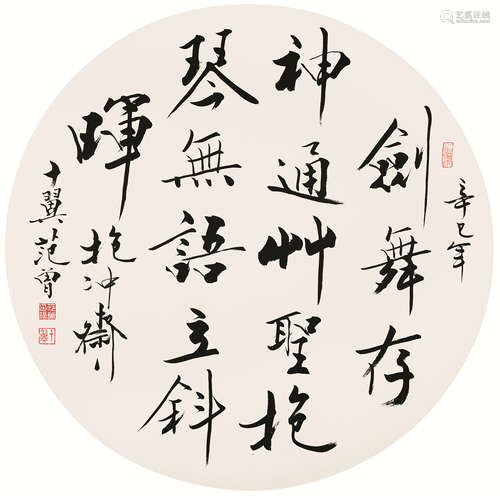 辛巳年
劍舞存
神通艸聖抱
琴無語立斜
暉
抱冲齋
十翼范曾